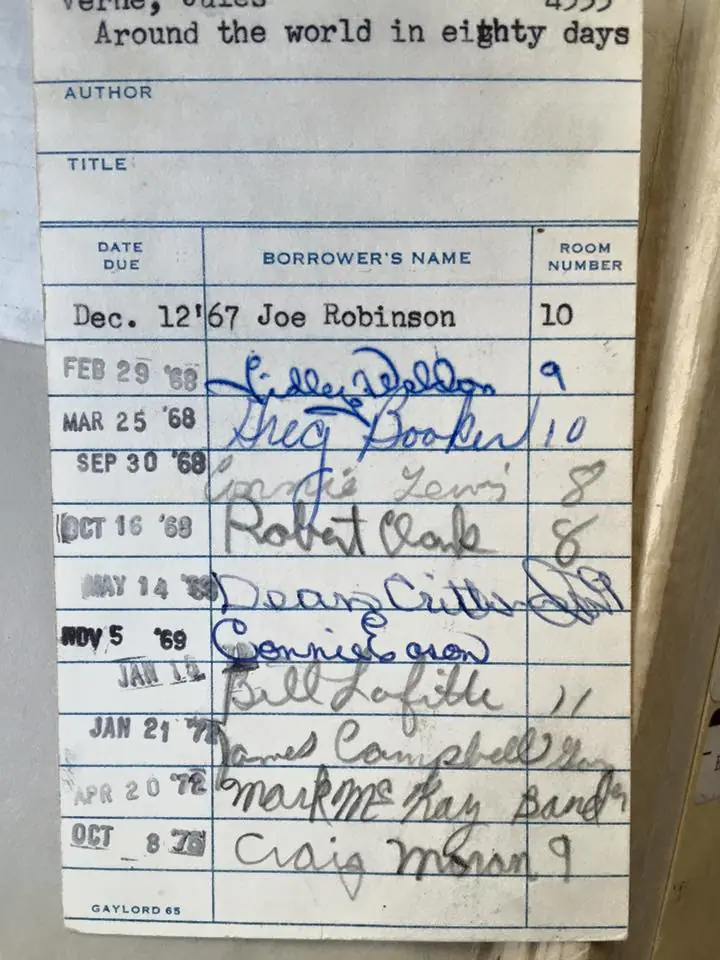 Verne, Jules 4555
Around the world in eighty days
AUTHOR
TITLE
DATE DUE BORROWER'S NAME ROOM NUMBER
Dec. 12'67 Joe Robinson 10
FEB 29 '68 9
MAR 25 '68 Greg Booker 10
SEP 30 '68 Connie Lewis 8
OCT 16 '68 Robert Clark 8
MAY 14 Dean
NOV 5 '69 Connie Eason
JAN Bill Lafitte 11
JAN 21 James Campbell
APR 20 72 Mark McKay Band
OCT 8 76 Craig Moran 9
GAYLORD 65